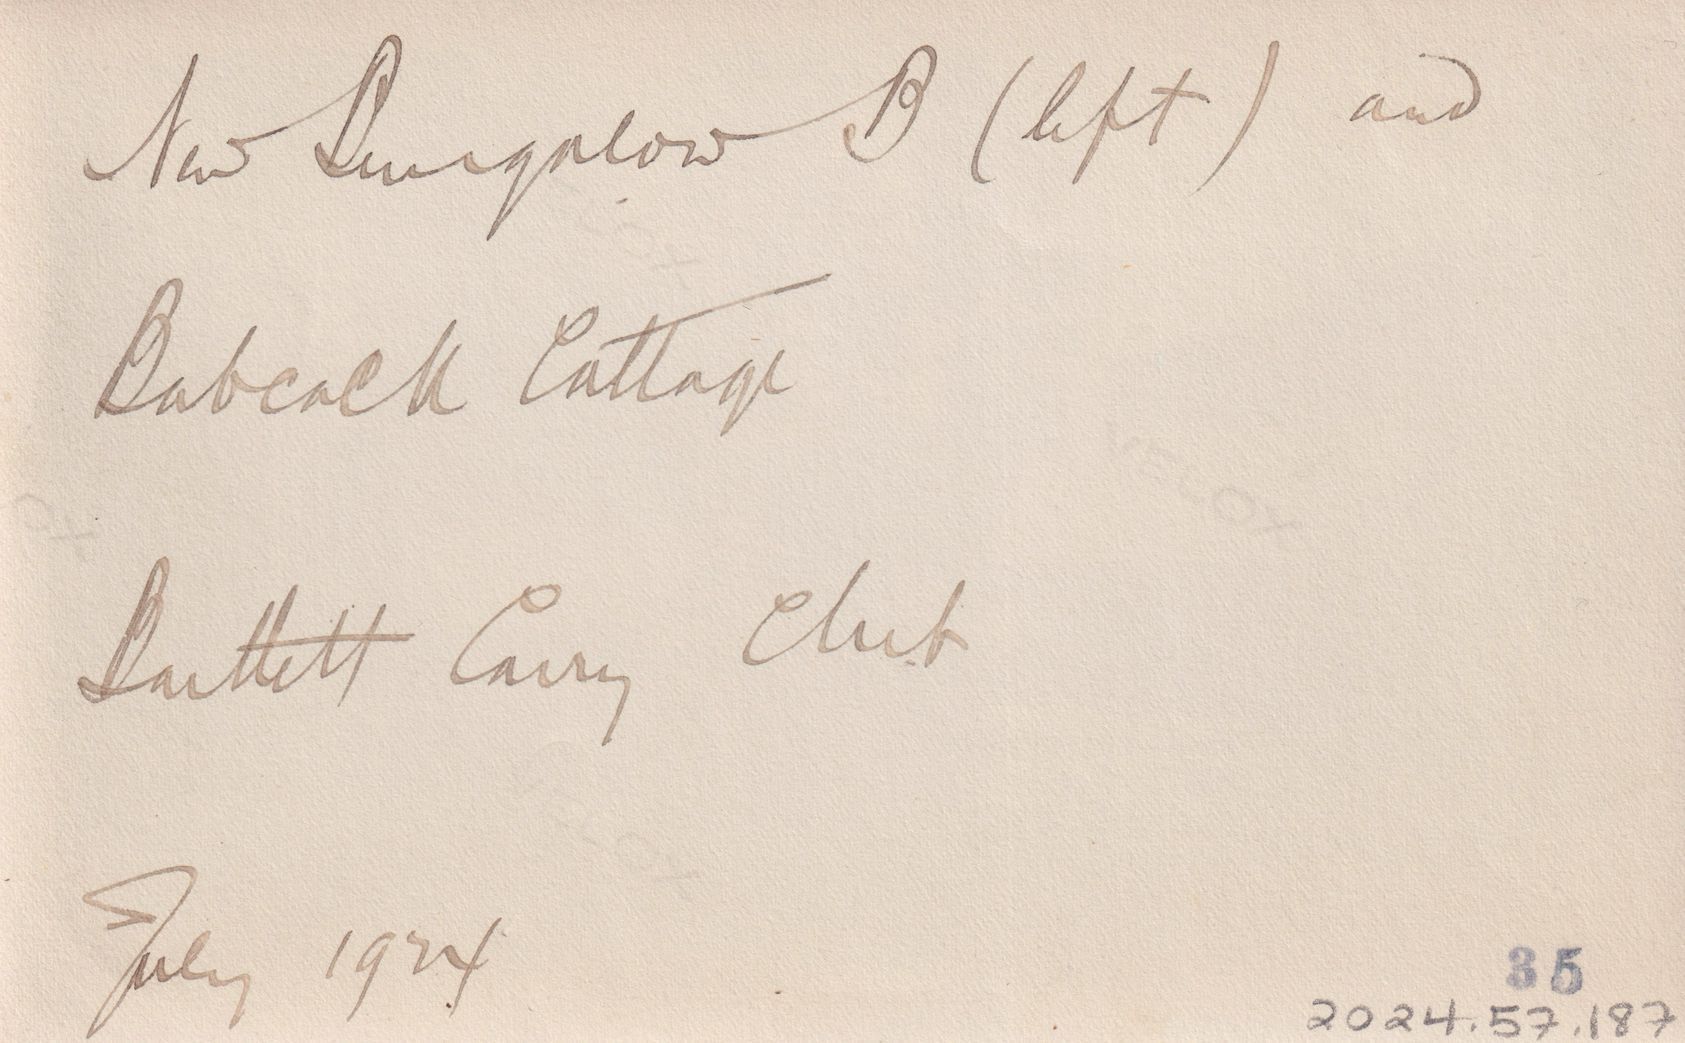 New Bungalow B (left) and
Babcock Cottage
VELOX
Bartlett Carry Club
VELOX
July 1924
35
2024.57.187